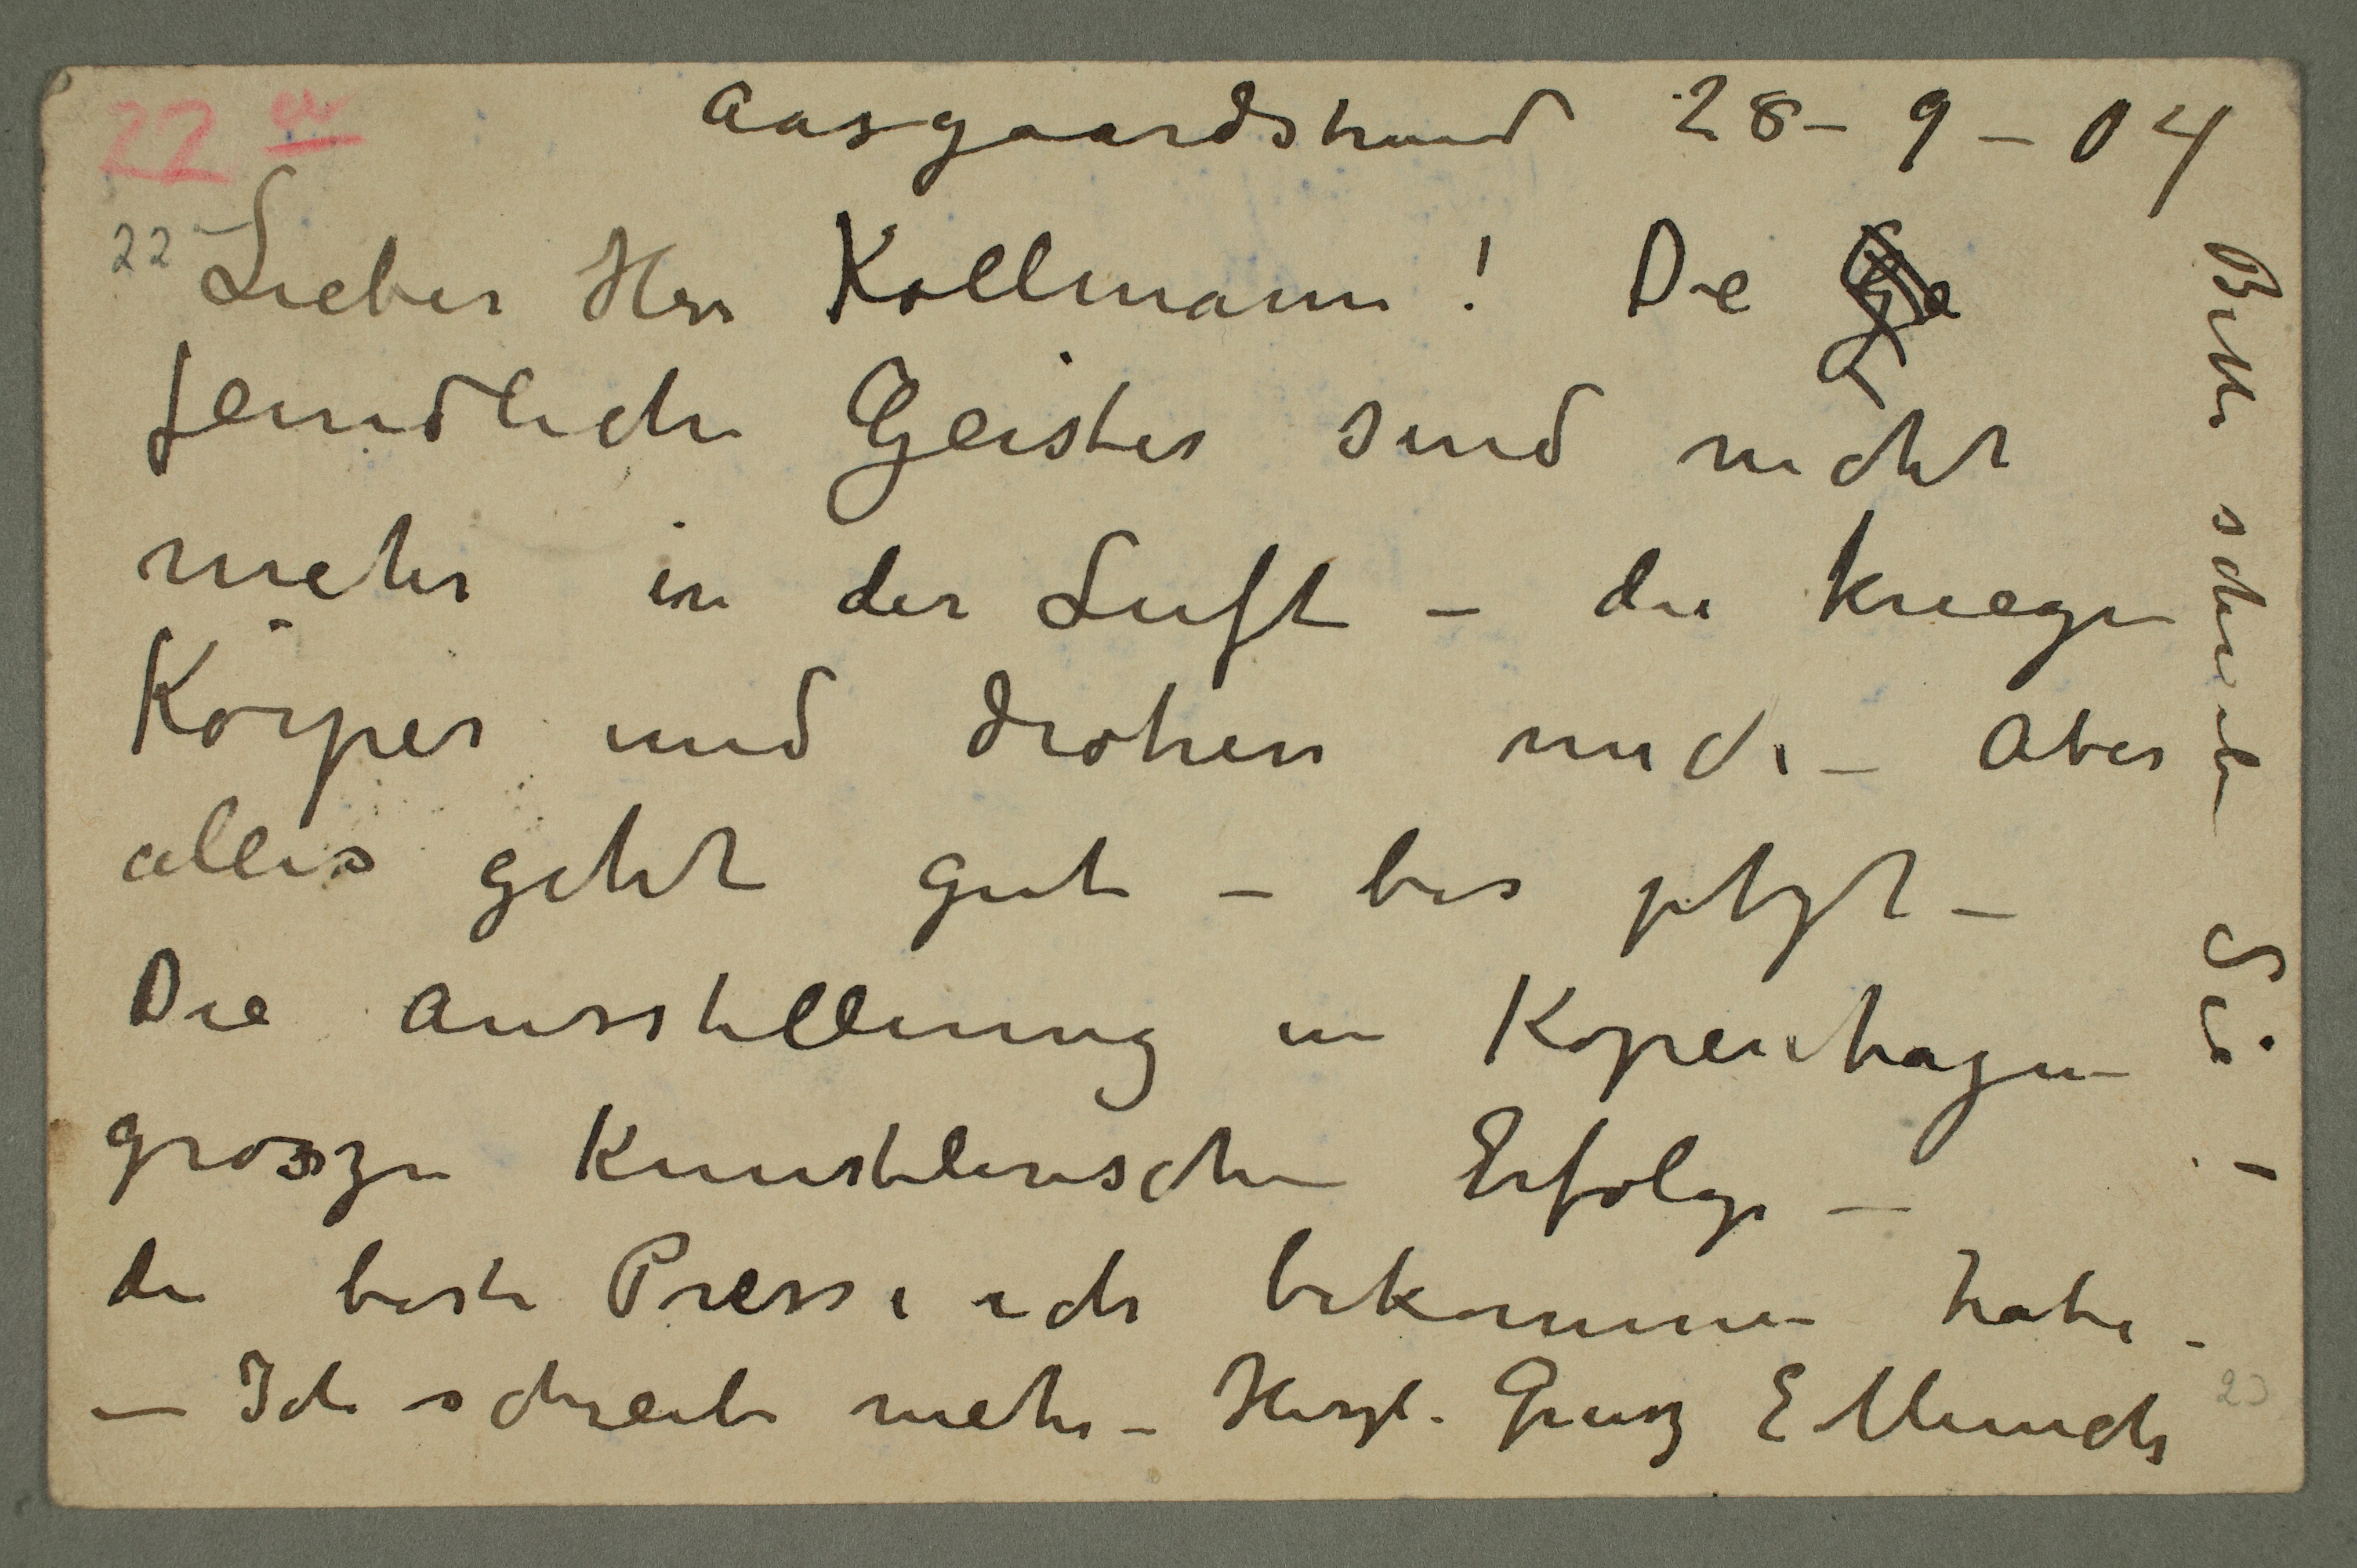 22 a
Aasgaardstrand 28–9–04
22 Lieber Herr Kollmann! Die Ge
feindliche Geister sind nicht
mehr in der Luft – die kriegen
Körper und drohen mich – Aber
alles geht gut – bis jetzt –
Die Ausstellung in Kopenhagen
groszen Kunstlerischen Erfolge –
die beste Presse ich bekommen habe –
– Ich schreibe mehr – Herzl. Grusz E Munch
23
Bitte schreiben Sie! –